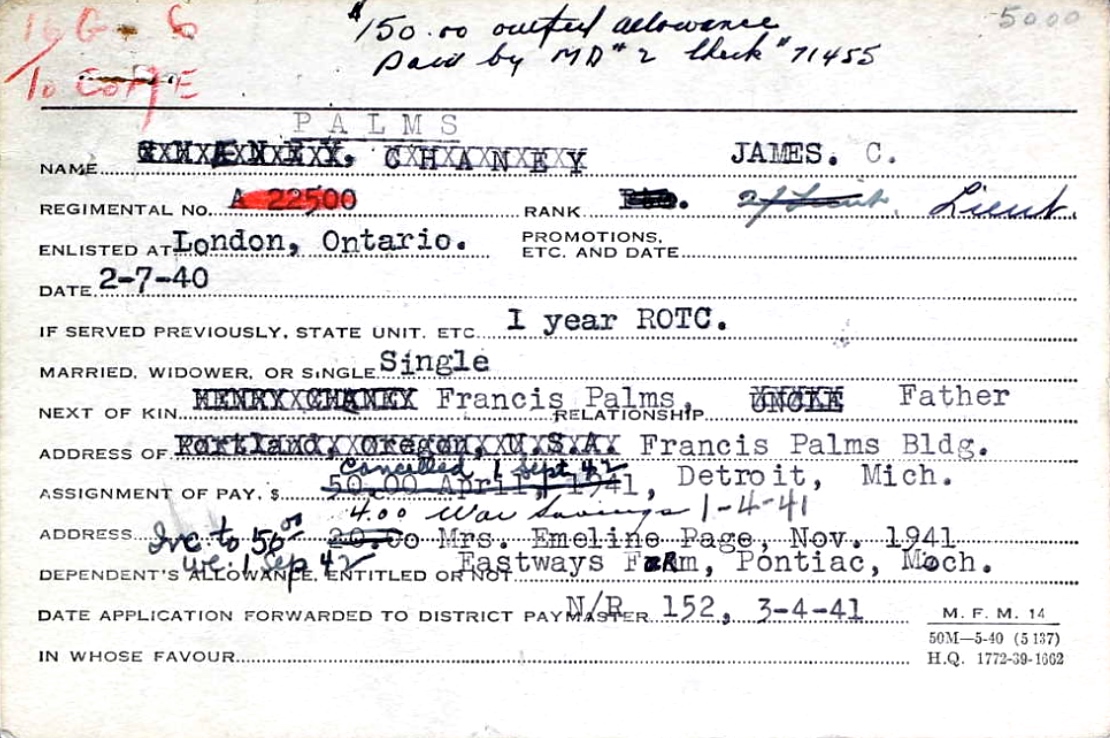 $150.00 outfit allowance 5000
Paid by MD #2 Check #71455
16 G - 6
To Coy E
PALMS
NAME CHANEY. CHANEY JAMES. C.
REGIMENTAL NO. A 22500 RANK Pte. 2/Lieut. Lieut.
ENLISTED AT London, Ontario. PROMOTIONS, ETC. AND DATE
DATE 2-7-40
IF SERVED PREVIOUSLY, STATE UNIT. ETC. I year ROTC.
MARRIED, WIDOWER, OR SINGLE Single
NEXT OF KIN HENRY CHANEY Francis Palms, RELATIONSHIP UNCLE Father
ADDRESS OF Portland, Oregon, U.S.A. Francis Palms Bldg.
Cancelled 1 Sept 42
ASSIGNMENT OF PAY, $ 50.00 April, 1941, Detroit, Mich.
4.00 War Savings 1-4-41
ADDRESS Inc to 50 00 20.00 Mrs. Emeline Page, Nov. 1941
we. 1 Sep 42 Eastways FaRm, Pontiac, Moch.
DEPENDENT'S ALLOWANCE, ENTITLED OR NOT
DATE APPLICATION FORWARDED TO DISTRICT PAYMASTER N/R 152, 3-4-41
M. F. M. 14
50M—5-40 (5137)
H.Q. 1772-39-1662
IN WHOSE FAVOUR